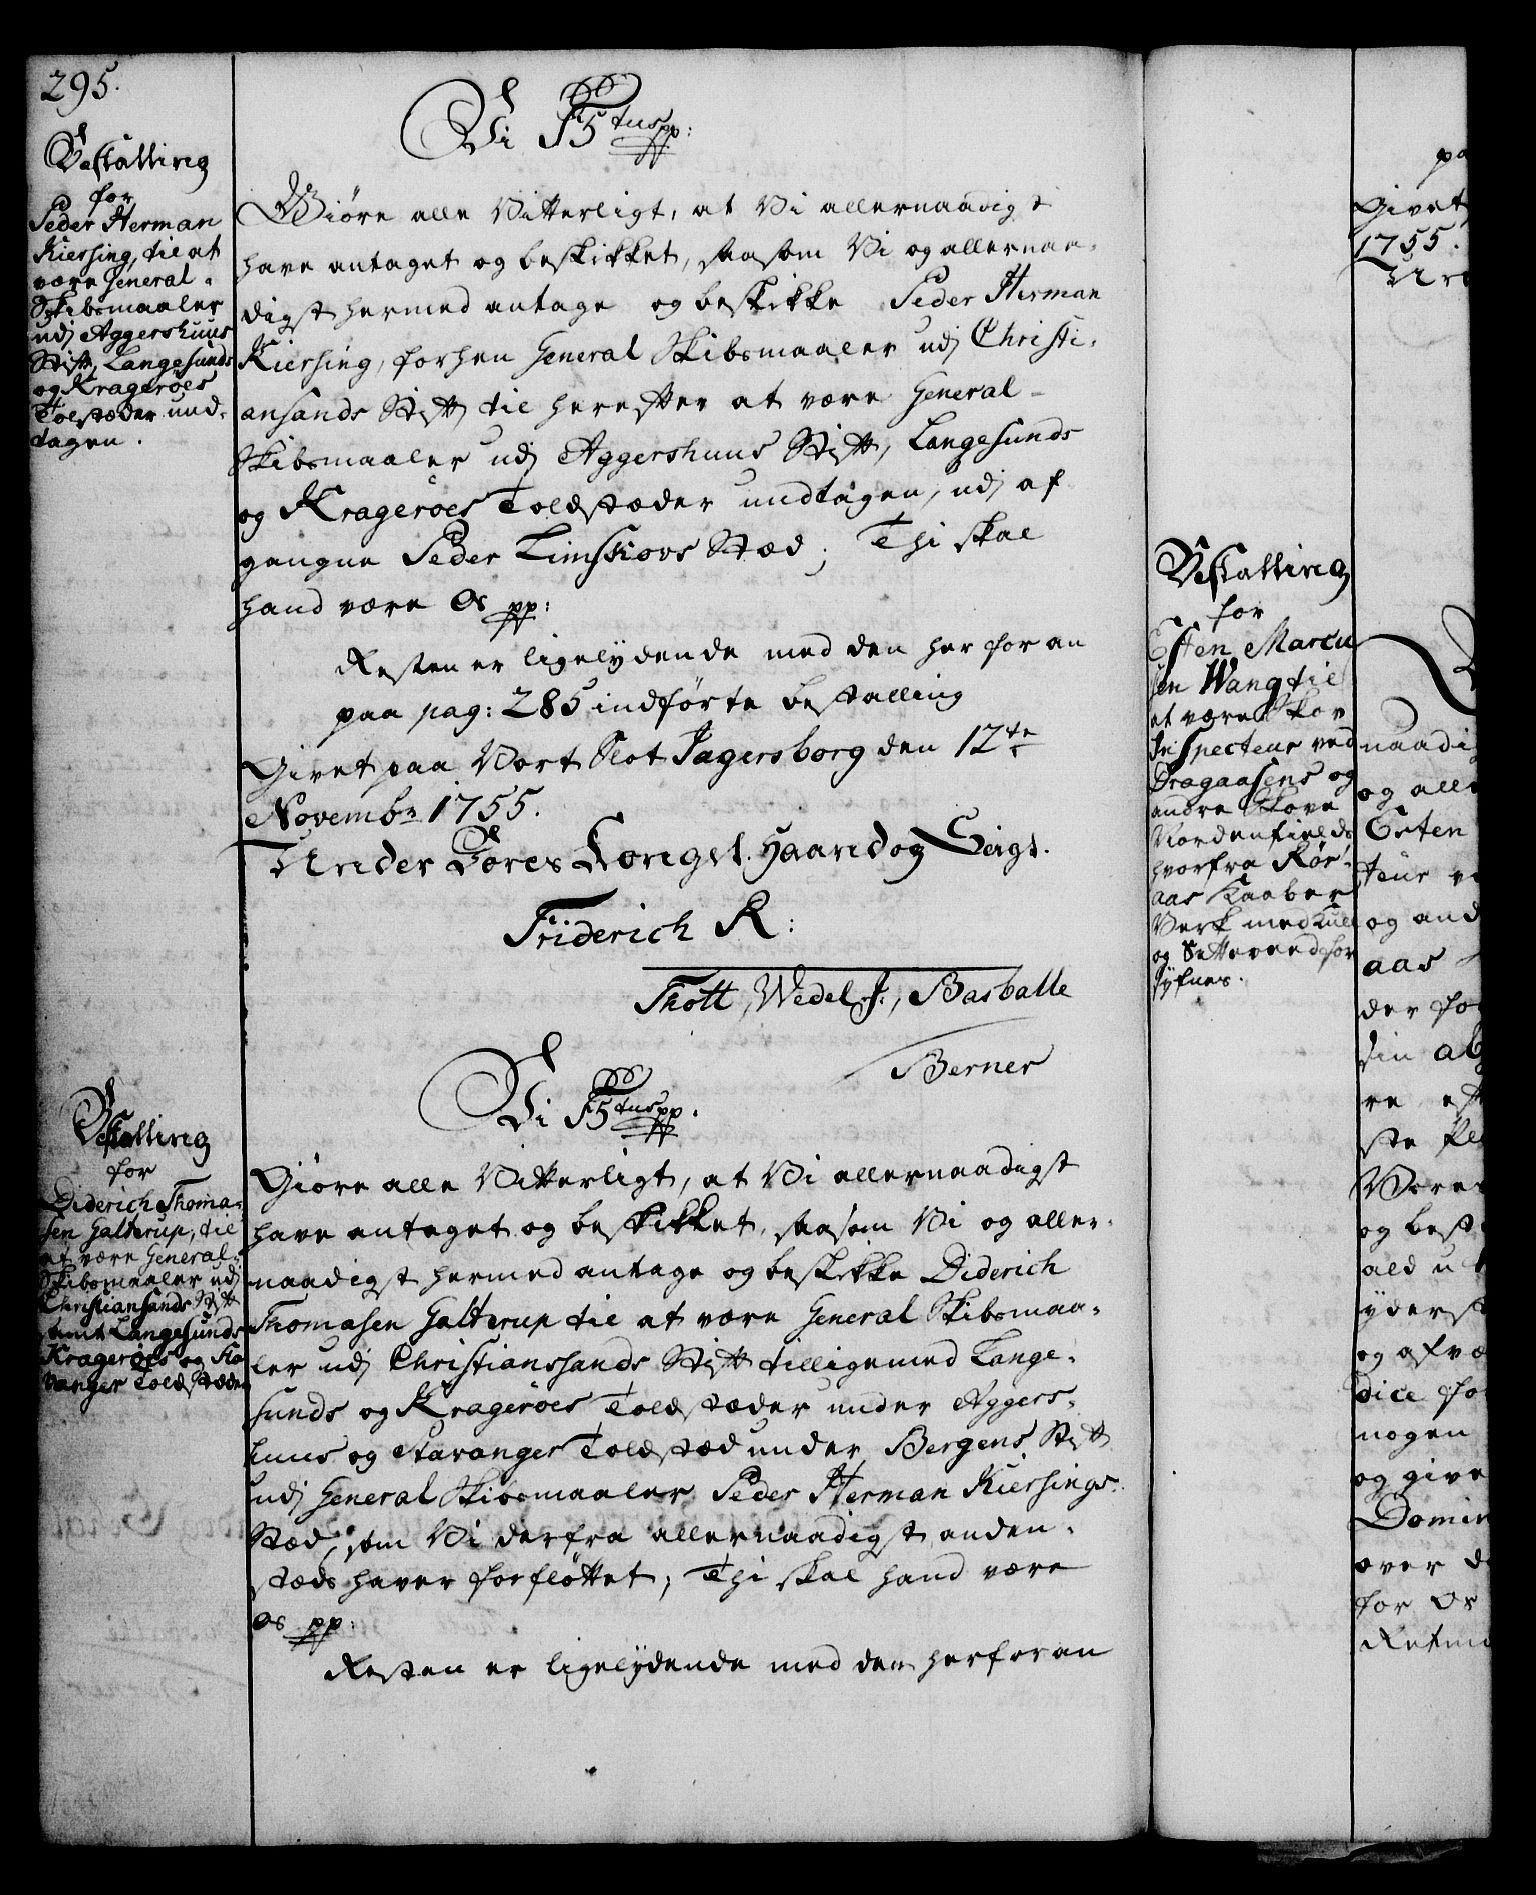 295.
Bestalling
for
Peder Herman
Kiersing, til at
være General-
Skibsmaaler
udj Aggershuus
Stift, Langesunds
og Kragerøes
Tolstæder und-
tagen.
Vi F5tus pp:
Giöre alle Vitterligt, at Vi allernaadigst
have antaget og beskikket, saasom Vi og allernaa-
digst hermed antage og beskikke Peder Herman
Kiersing, forhen General Skibsmaaler udj Christi-
ansands Stift til herefter at være General-
Skibsmaaler udj Aggershuus Stift, Langesunds
og Kragerøes Toldstæder undtagen, udj af
gangne Peder Limskiovs Stæd; Thi skal
hand være Os pp:
Resten er ligelydende med den her foran
paa pag: 285 indførte bestalling
Givet paa Vort Slot Jagersborg den 12te
Novembr 1755.
Under Vores Kongel. Haand og Seigl.
Friderich R:
Thott, Wedel J., Basballe
Berner
Bestalling
for
Diderich Thoma-
sen Galterup, til
at være General-
Skibsmaaler udj
Christiansands Stift
samt Langesunds
Kragerøes og Sta
vanger Toldstæder
Vi F5tus pp.
Giöre alle Vitterligt, at Vi allernaadigst
have antaget og beskikket, saasom Vi og aller-
naadigst hermed antage og beskikke Diderich
Thomasen Galterup til at være General Skibsmaa-
ler udj Christianssands Stift tilligemed Lange-
sunds og Kragerøes Toldstæder under Aggers-
huus og Stavanger Toldstæd under Bergens Stift
udj General Skibsmaaler Peder Herman Kiersings
Stæd, som Vi derfra allernaadigst anden-
stæds haver forfløttet; Thi skal hand være
Os pp:
Resten er ligelydende med den herforan
Bestalling
for
Esten Marcu
sen Wang til
at være Skov
Inspecteur ved
Dragaasens og
andre Skove
Nordenfields
hvorfra Rør-
aas Kaaber
Verk med Kull
og Setteveed for
syfnes.
pa
Givet
1755.
Un
naadi
og alle
Esten
teur ve
og and
aas
der for
sin
re eft
ste
Vores
og best
ald
yderst
og afvæ
dice for
nogen
og give
Domin
over d
for Os